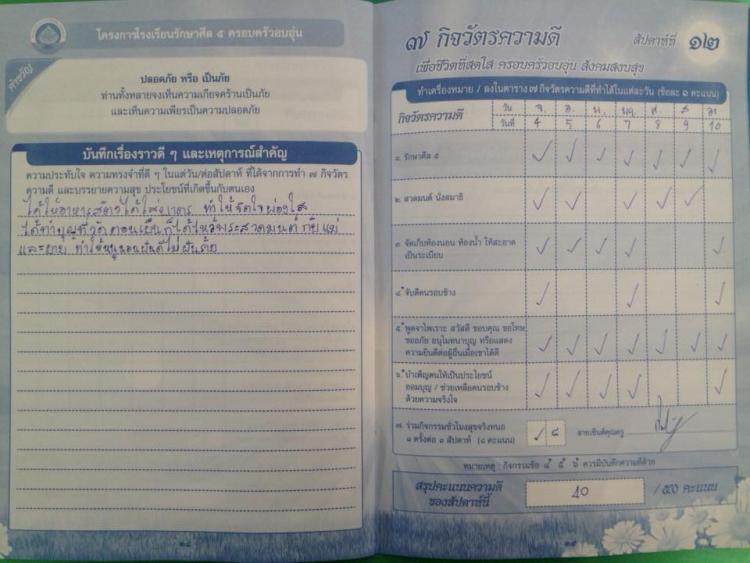 โครงการโรงเรียนรักษาศีล ๕ ครอบครัวอบอุ่น
คำขวัญ
ปลอดภัย หรือ เป็นภัย
ท่านทั้งหลายจงเห็นความเกียจคร้านเป็นภัย
และเห็นความเพียรเป็นความปลอดภัย
บันทึกเรื่องราวดี ๆ และเหตุการณ์สำคัญ
ความประทับใจ ความทรงจำที่ดี ๆ ในแต่วัน/ต่อสัปดาห์ ที่ได้จากการทำ ๗ กิจวัตร
ความดี และบรรยายความสุข ประโยชน์ที่เกิดขึ้นกับตนเอง
ได้ให้อาหารสัตว์ได้ใส่บาตร ทำให้จิตใจผ่องใส
ได้ทำบุญที่วัด ตอนเย็นก็ได้ไหว้พระสวดมนต์ กับแม่
และยาย ทำให้หนูนอนฝันดีไม่ฝันร้าย
๗ กิจวัตรความดี
สัปดาห์ที่ ๑๒
เพื่อชีวิตที่สดใส ครอบครัวอบอุ่น สังคมสงบสุข
ทำเครื่องหมาย / ลงในตาราง ๗ กิจวัตรความดีที่ทำได้ในแต่ละวัน (ข้อละ ๑ คะแนน)
กิจวัตรความดี
วัน จ. อ. พ. พฤ. ศ. ส อา
วันที่ 4 5 6 7 8 9 10
๑. รักษาศีล ๕
๒. สวดมนต์ นั่งสมาธิ
๓. จัดเก็บห้องนอน ห้องน้ำ ให้สะอาด
เป็นระเบียบ
๔. จับดีคนรอบข้าง
๕. พูดจาไพเราะ สวัสดี ขอบคุณ ขอโทษ
ขออภัย อนุโมทนาบุญ หรือแสดง
ความยินดีต่อผู้อื่นเมื่อเขาได้ดี
๖. บำเพ็ญตนให้เป็นประโยชน์
ออมบุญ / ช่วยเหลือคนรอบข้าง
ด้วยความจริงใจ
๗. ร่วมกิจกรรมชั่วโมงสุขจริงหนอ
๑ ครั้งต่อ ๑ สัปดาห์ (๘ คะแนน)
๘
ลายเซ็นต์คุณครู
หมายเหตุ : กิจกรรมข้อ ๔ ๕ ๖ ควรมีบันทึกความดีด้วย
สรุปคะแนนความดี
ของสัปดาห์นี้
40
/ ๕๐ คะแนน